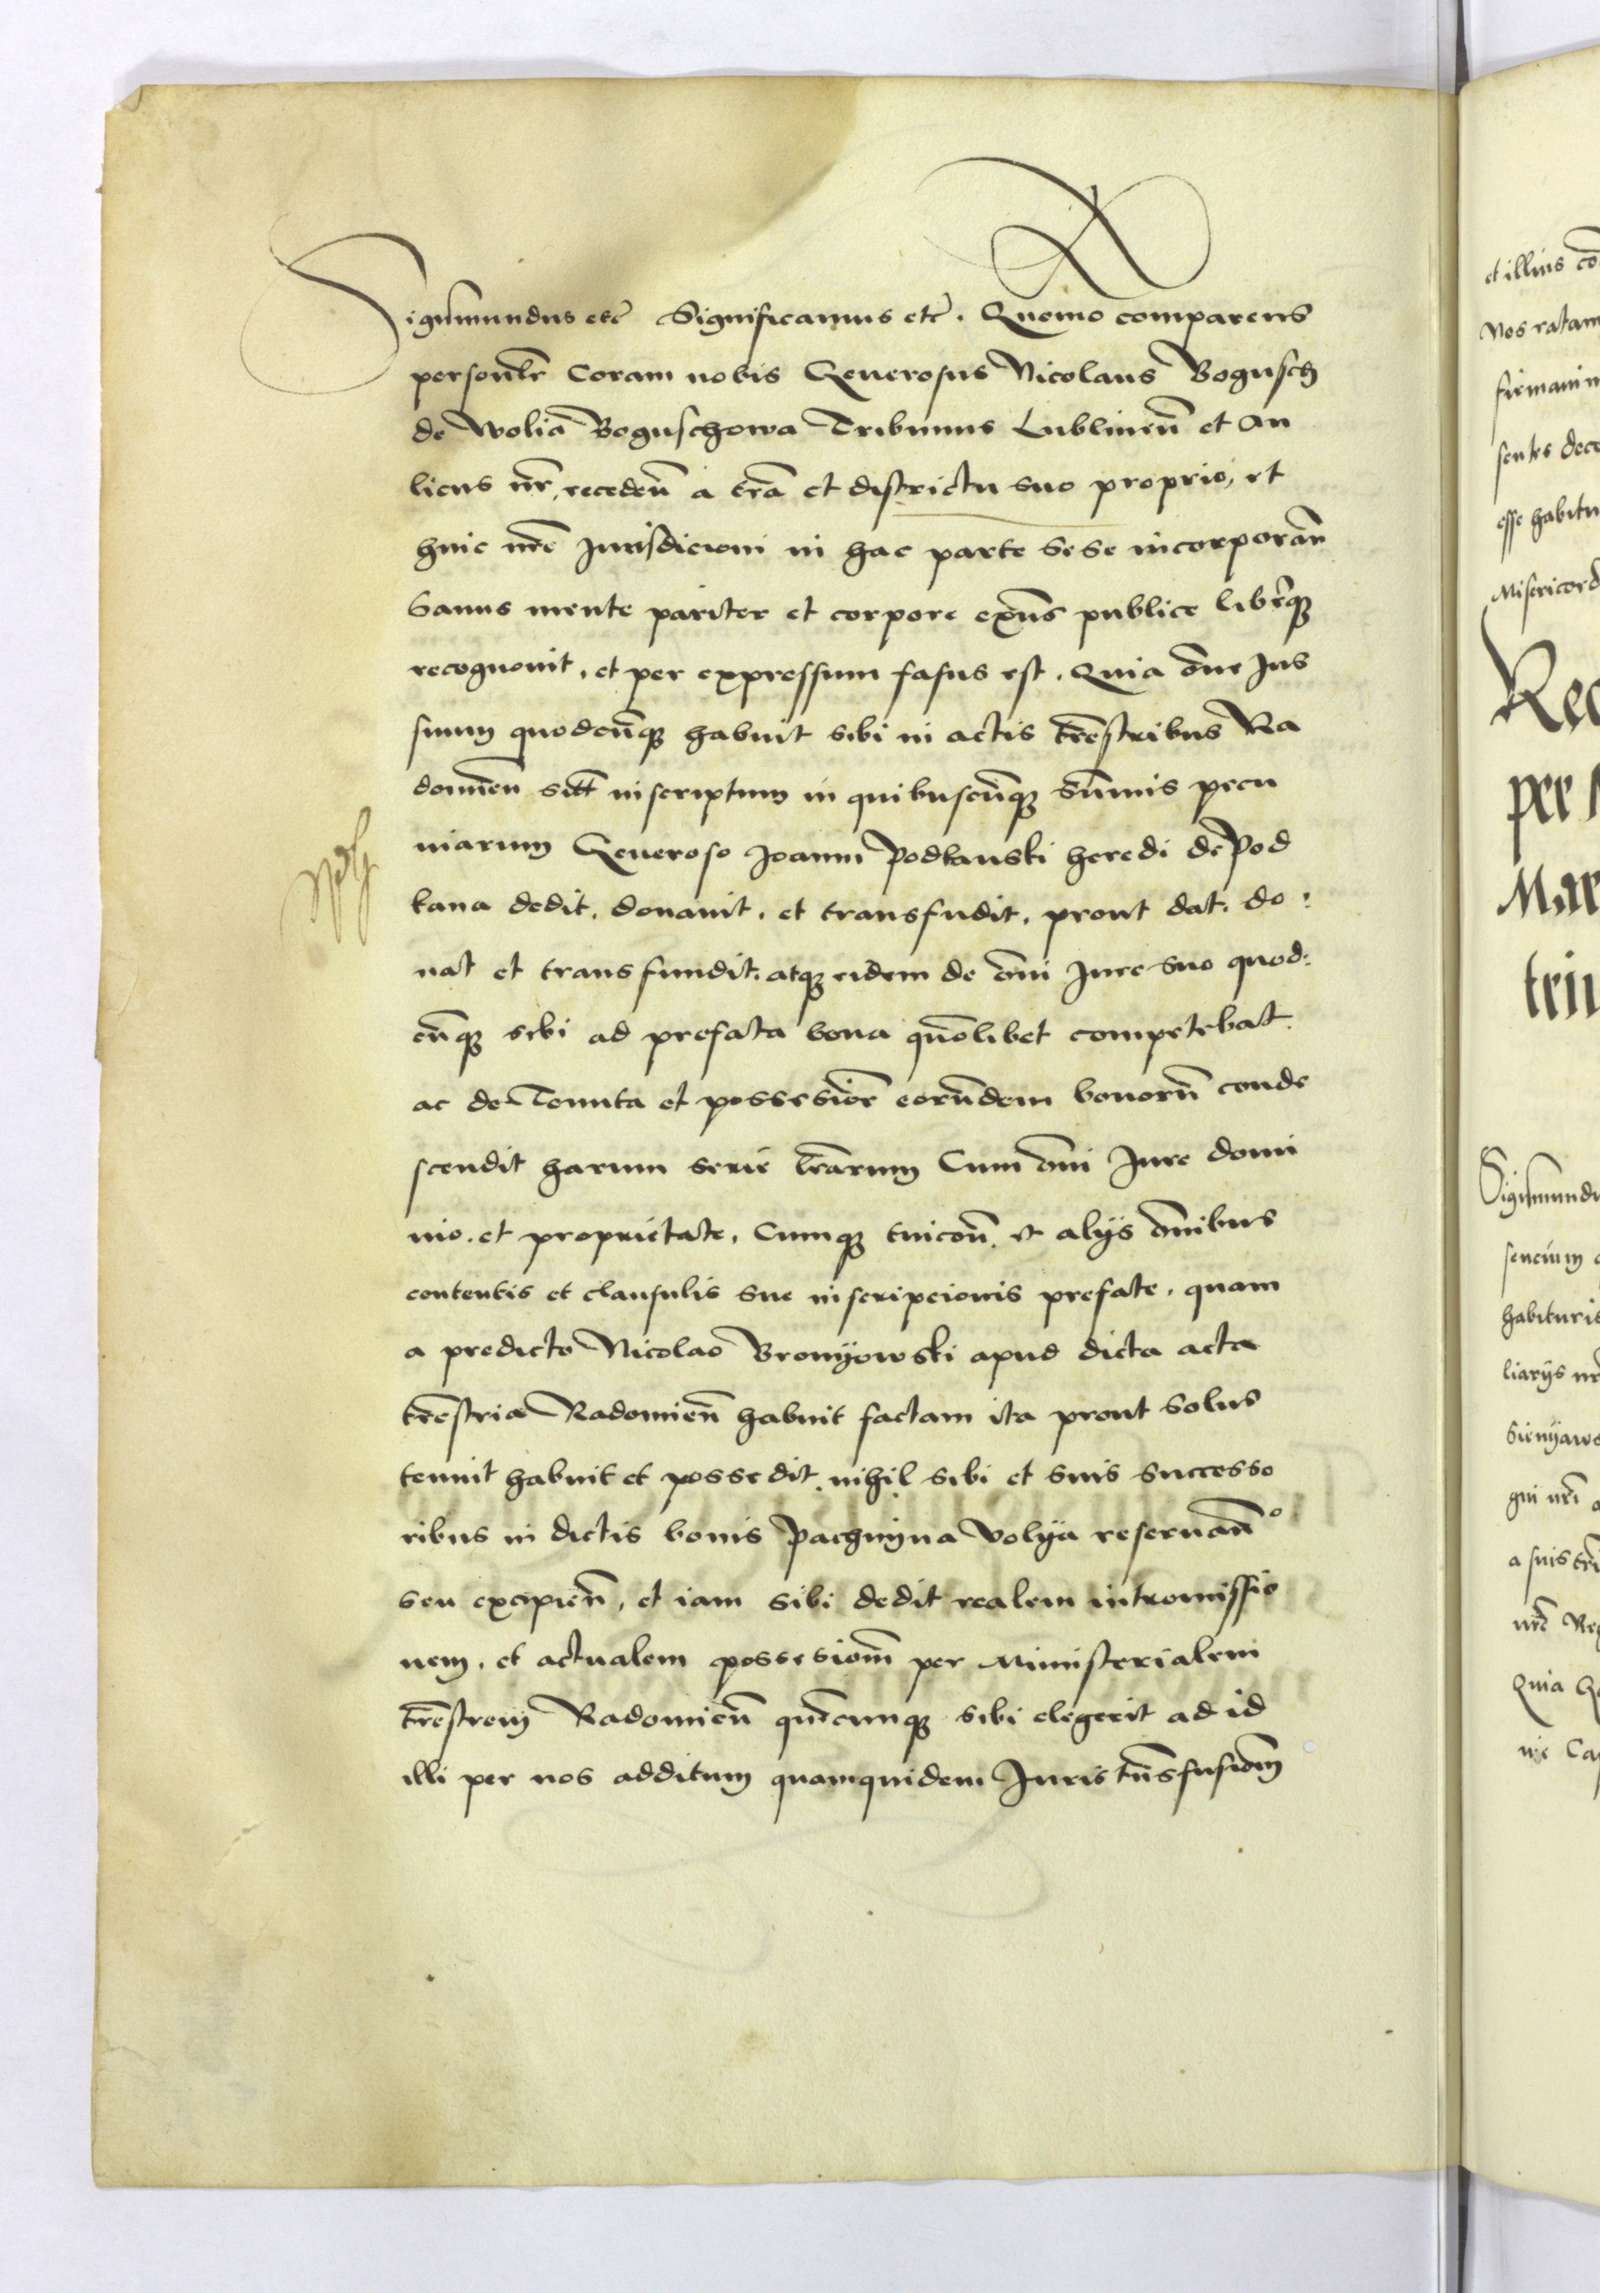 Sigismundus etc̃ Significamus etc̃. Quomo comparens
personlr̃ Coram nobis Generosus Nicolaus Bogusch
de Wolia Boguschowa Tribunus Lublineñ et Au
licus nr̃, recedeñ a tr̃a et districtu suo proprio, et
huic nr̃e Jurisdicioni in hac parte sese incorporañ
Sanus mente pariter et corpore exñs publice libereq̃
recognovit, et per expressum fasus est. Quia om̃e Jus
suum quodcũq̃ habuit sibi in actis tr̃estribus Ra
domieñ inscriptum in quibuscũq̃ sum̃is pecu
niarum Generoso Joanni Podlanski heredi de Pod
lana dedit, donavit, et transfudit, prout dat, do:
nat et transfundit, atq̃ eidem de om̃i Jure suo quod:
cũq̃ sibi ad prefata bona quõlibet competebat.
ac de Tenuta et possessiõe eorũdem bonorũ conde
scendit harum serie lr̃arum Cum om̃i Jure domi
nio, et proprietate, Cumq̃ evicõñ et alÿs om̃ibus
contentis et clausulis sue inscripcionis prefate, quam
a predicto Nicolao Bronÿowski apud dicta acta
tr̃estria Radomieñ habuit factam ita prout solus
tenuit habuit et possedit, nihil sibi et suis successo
ribus in dictis bonis Pachnÿna Volÿa reservañ
seu excipieñ, et iam sibi dedit realem intromissio
nem, et actualem possessiom̃ per Ministerialem
tr̃estrem Radomieñ quẽcunq̃ sibi elegerit ad id
illi per nos additum quamquidem Juris trñsfusiom̃
et illius
Nos ratam
sentes
esse
Rec
per
Mar
triu
Sigismundu
habituris
liarÿs
a suis
Quia